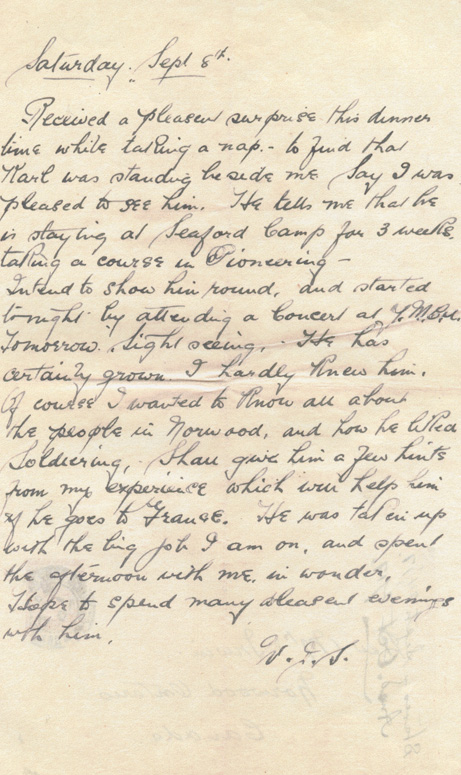 Saturday. Sept 8th.
Received a pleasent surprise this dinner
time while taking a nap. - to find that
Karl was standing beside me Say I was
pleased to see him. He tells me that he
is staying at Seaford Camp for 3 weeks.
taking a course in Pioneering -
Intend to show him round, and started
tonight by attending a Concert at Y.M.C.A.
Tomorrow. Sight seeing. He has
certainly grown. I hardly knew him.
Of course I wanted to know all about
the people in Norwood, and how he liked
Soldiering, Shall give him a few hints
from my experience which will help him
if he goes to France. He was taken up
with the big job I am on, and spent
the afternoon with me, in wonder.
Hope to spend many pleasent evenings
with him.